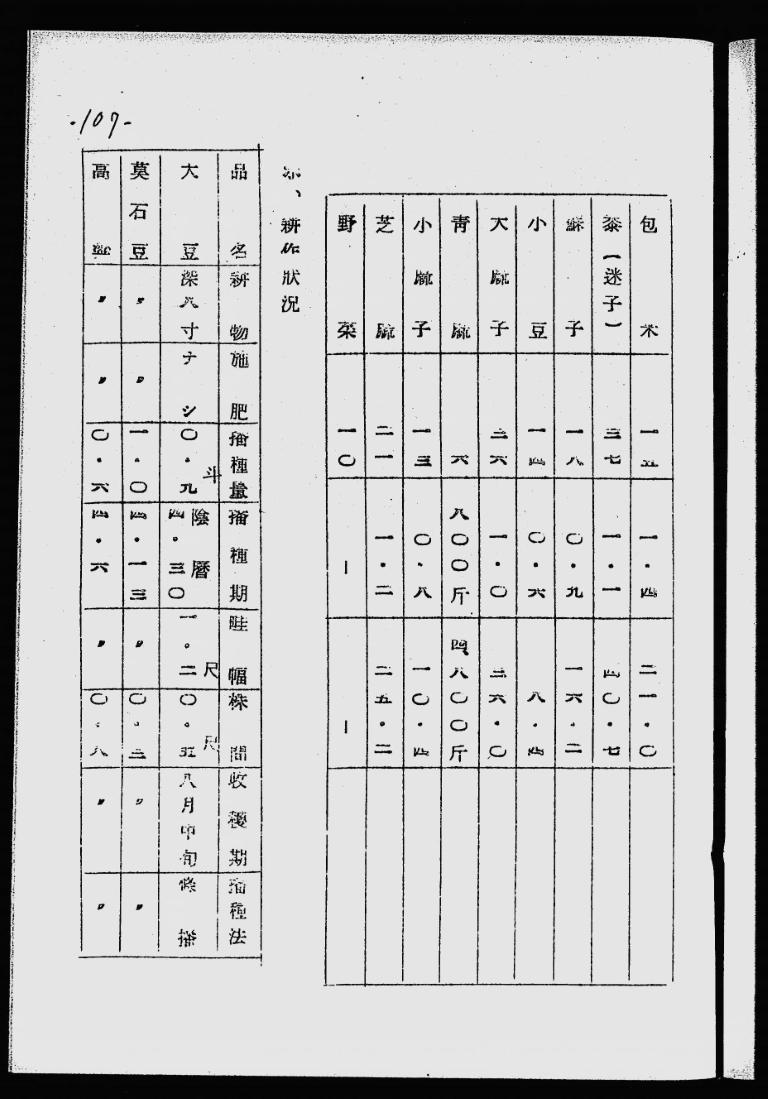 -107-
包米 一五 一・四 二一・〇
黍(迷子) 三七 一・一 四〇・七
蘇子 一八 〇・九 一六・二
小豆 一四 〇・六 八・四
大麻子 三六 一・〇 三六・〇
青麻 六 八〇〇斤 四八〇〇斤
小麻子 一三 〇・八 一〇・四
芝麻 二一 一・二 二五・二
野菜 一〇 － －
、耕作狀況
品名 耕物 施肥 播種量 播種期 畦幅 株間 收穫期 播種法
大豆 深八寸 ナシ 〇・九斗 陰曆四・三〇 一。二尺 〇・五尺 八月中旬 條播
莫石豆 〃 〃 一・〇 四・一三 〃 〇。三 〃 〃
高粱 〃 〃 〇・六 四・六 〃 〇。八 〃 〃